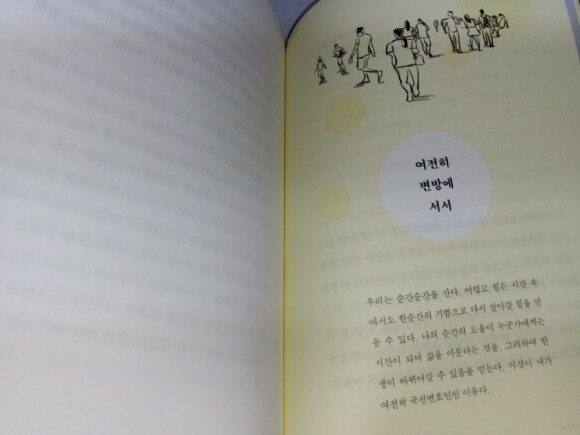 여전히
변방에
서서
우리는 순간순간을 산다. 어렵고 힘든 시간 속
에서도 한순간의 기쁨으로 다시 살아갈 힘을 얻
을 수 있다. 나의 순간의 도움이 누군가에게는
시간이 되어 삶을 이룬다는 것을, 그리하여 한
생이 바뀌어갈 수 있음을 믿는다. 이것이 내가
여전히 국선변호인인 이유다.